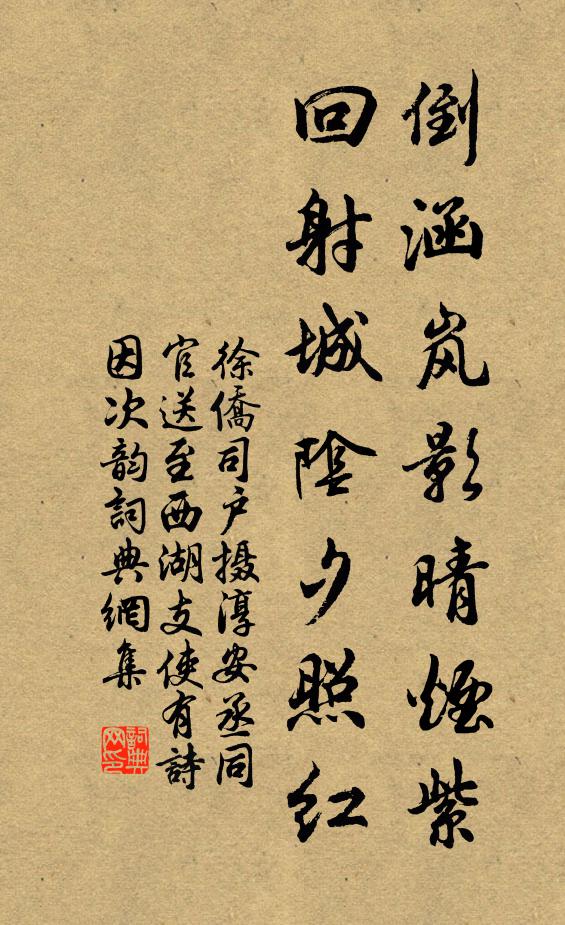 倒涵岚影晴烟紫
回射城陰夕照红
徐僑司户摄淳安丞同
官送至西湖支使有詩
因次韵詞典網集
詞典网印